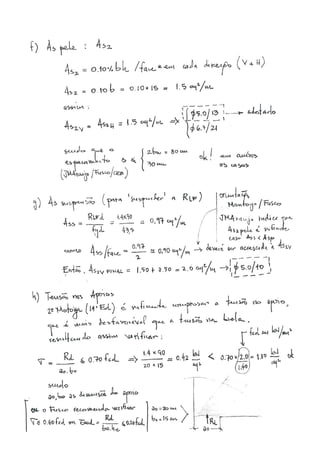 f) As pele : As2
As2 = 0.10% bh /face e em cada direção (V e H)
As2 = 0.10 b = 0.10 * 15 = 1.5 cm²/m
assim :
As2v = As2H = 1.5 cm²/m => ϕ5.0/13 → adotado
ϕ6.3/21
sendo que o
espaçamento s ≤ { 2bw = 30 cm
30 cm
ok! em ambos
os casos
(JMAraújo/Fusco/CEB)
g) As suspensão (para 'suspender' a RLV)
Ass = RLVd / fyd = 1.4x30 / 43.5 = 0.97 cm²/m
como Ass/face = 0.97 / 2 ≅ 0.50 cm²/m → deverá ser acrescida a Asv
Então, Asv FINAL = 1.50 + 0.50 = 2.0 cm²/m → ϕ5.0/10
orientação
Montoya/Fusco
JMAraujo indica que
Aspele é suficiente
caso As2 ≥ Assp
h) Tensão nos Apoios
é suficiente comparar a tensão no apoio,
que é mais desfavorável que a tensão na biela.
assim verificar :
σ = Rd / ao.bo ≤ 0.70 fcd => 1.4 x 90 / 20 * 15 = 0.42 kN/cm² < 0.70 * 2.0 / 1.40
ok
fcd em kN/cm²
sendo
ao, bo as dimensões do apoio
OBS o Fusco recomenda verificar
σ ≤ 0.60 fcd
ao = 20 cm
bo = 15 cm
RL
ao